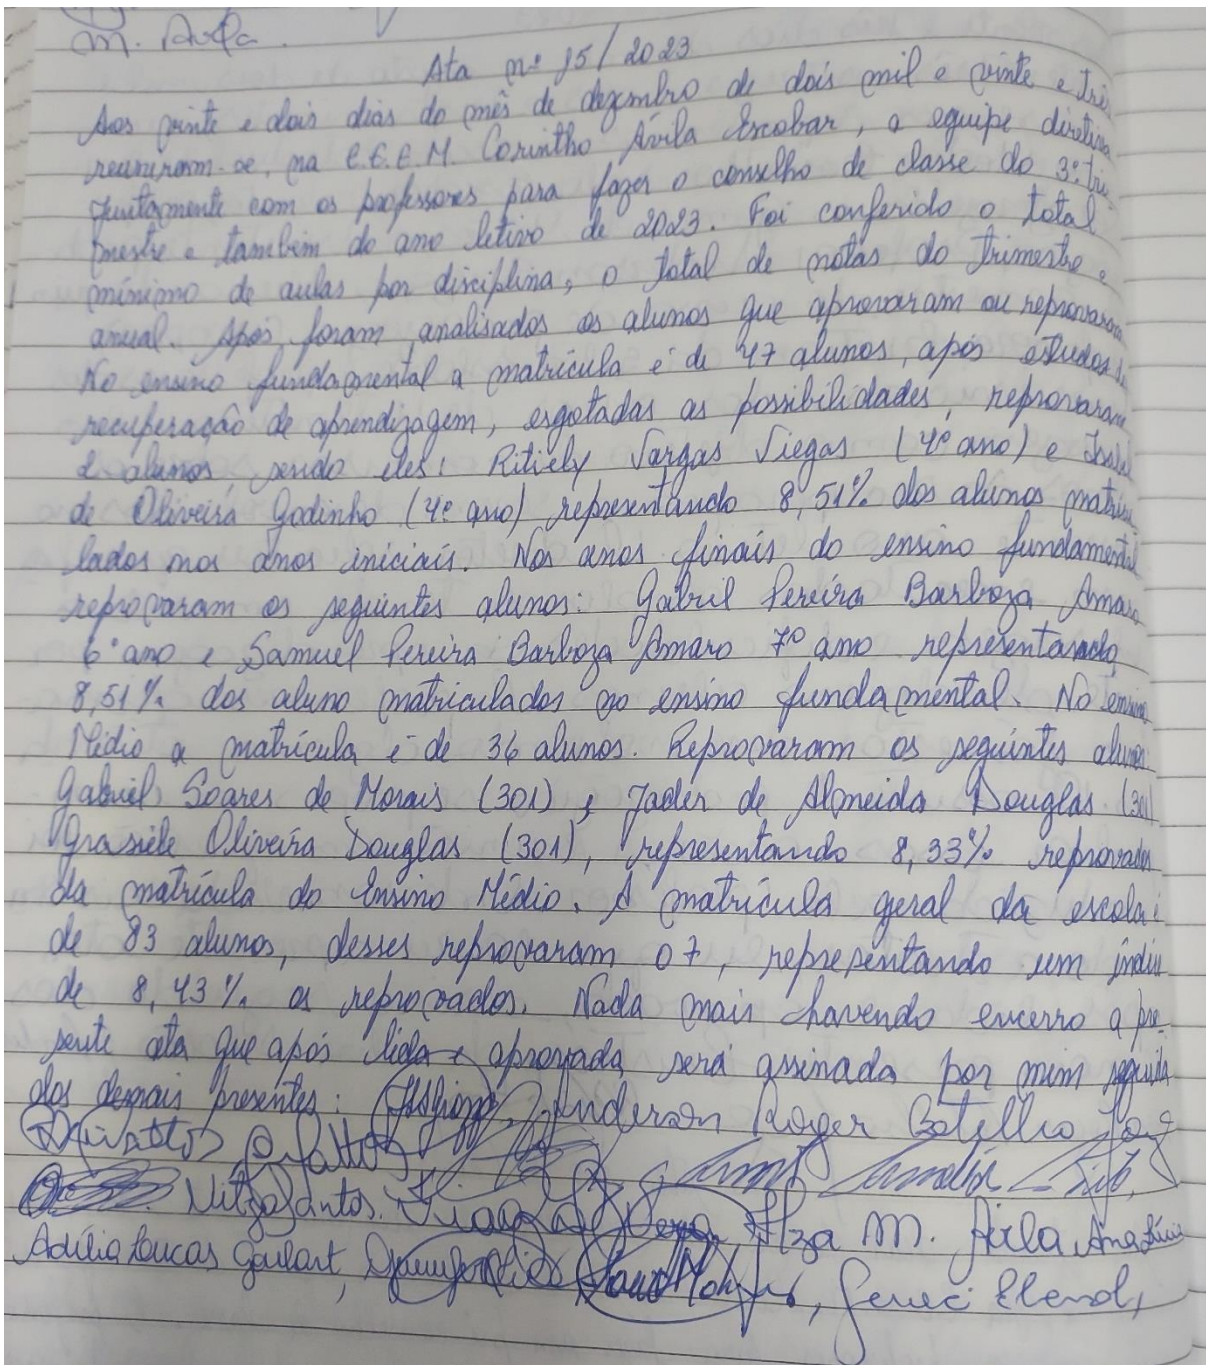 M. Avila.
Ata nº 15/2023
Aos vinte e dois dias do mês de dezembro de dois mil e vinte e três
reuniram-se, na E.E.E.M. Corintho Ávila Escobar, a equipe diretiva
juntamente com os professores para fazer o conselho de classe do 3º tri
mestre e também do ano letivo de 2023. Foi conferido o total
mínimo de aulas por disciplina, o total de notas do trimestre e
anual. Após foram analisados os alunos que aprovaram ou reprovaram
No ensino fundamental a matrícula é de 47 alunos, após estudos de
recuperação de aprendizagem, esgotadas as possibilidades, reprovaram
2 alunos, sendo eles: Ritiely Vargas Viegas (4º ano) e
de Oliveira Godinho (4º ano) representando 8,51% dos alunos matricu
lados nos anos iniciais. Nos anos finais do ensino fundamental
reprovaram os seguintes alunos: Gabril Pereira Barboza Amaro
6º ano e Samuel Pereira Barboza Amaro 7º ano representando
8,51% dos aluno matriculados no ensino fundamental. No ensino
Médio a matrícula é de 36 alunos. Reprovaram os seguintes alunos:
Gabriel Soares de Morais (301), Jader de Almeida Douglas (301)
Grasiele Oliveira Douglas (301), representando 8,33% reprovados
da matrícula do Ensino Médio. A matrícula geral da escola é
de 83 alunos, desses reprovaram 07, representando um índice
de 8,43% os reprovados. Nada mais havendo encerro a pre-
sente ata que após lida e aprovada será assinada por mim seguida
dos demais presentes: Anderson Roger Botelho
Nilza Santos. Elza M. Avila Ana
Adília Lucas Goulart,